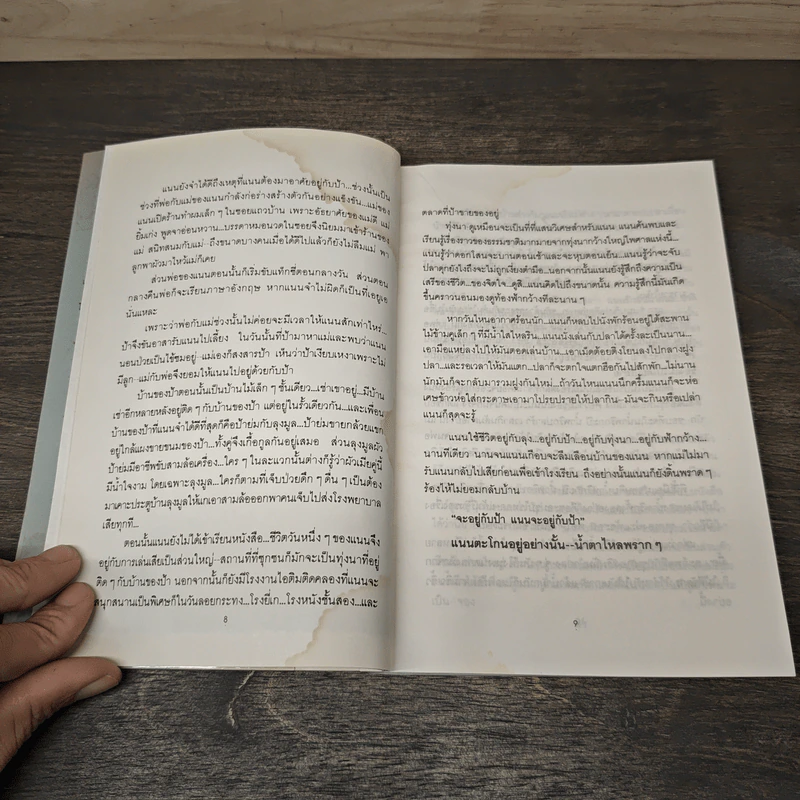 แนนยังจำได้ดีถึงเหตุที่แนนต้องมาอาศัยอยู่กับป้า...ช่วงนั้นเป็น
ช่วงที่พ่อกับแม่ของแนนกำลังก่อร่างสร้างตัวกันอย่างแข็งขัน...แม่ของ
แนนเปิดร้านทำผมเล็ก ๆ ในซอยแถวบ้าน เพราะอัธยาศัยของแม่ดี แม่
ยิ้มเก่ง พูดจาอ่อนหวาน...บรรดาหมอนวดในซอยจึงนิยมมาเข้าร้านของ
แม่ สนิทสนมกับแม่--ถึงขนาดบางคนเมื่อได้ดีไปแล้วก็ยังไม่ลืมแม่ พา
ลูกพาผัวมาไหว้แม่ก็เคย
ส่วนพ่อของแนนตอนนั้นก็เริ่มขับแท็กซี่ตอนกลางวัน ส่วนตอน
กลางคืนพ่อก็จะเรียนภาษาอังกฤษ หากแนนจำไม่ผิดก็เป็นที่เอยูเอ
นั่นแหละ
เพราะว่าพ่อกับแม่ช่วงนั้นไม่ค่อยจะมีเวลาให้แนนสักเท่าไหร่...
ป้าจึงขันอาสารับแนนไปเลี้ยง ในวันนั้นที่ป้ามาหาแม่และพบว่าแนน
นอนป่วยเป็นไข้ซมอยู่--แม่เองก็สงสารป้า เห็นว่าป้าเงียบเหงาเพราะไม่
มีลูก--แม่กับพ่อจึงยอมให้แนนไปอยู่ด้วยกับป้า
บ้านของป้าตอนนั้นเป็นบ้านไม้เล็ก ๆ ชั้นเดียว...เช่าเขาอยู่...มีบ้าน
เช่าอีกหลายหลังอยู่ติด ๆ กับบ้านของป้า แต่อยู่ในรั้วเดียวกัน...และเพื่อน
บ้านของป้าที่แนนจำได้ดีที่สุดก็คือป้าย่มกับลุงมูล...ป้าย่มขายกล้วยแขก
อยู่ใกล้แผงขายขนมของป้า...ทั้งคู่จึงเกื้อกูลกันอยู่เสมอ ส่วนลุงมูลผัว
ป้าย่มมีอาชีพขับสามล้อเครื่อง...ใคร ๆ ในละแวกนั้นต่างก็รู้ว่าผัวเมียคู่นี้
มีน้ำใจงาม โดยเฉพาะลุงมูล...ใครก็ตามที่เจ็บป่วยดึก ๆ ดื่น ๆ เป็นต้อง
มาเคาะประตูบ้านลุงมูลให้แกเอาสามล้อออกพาคนเจ็บไปส่งโรงพยาบาล
เสียทุกที...
ตอนนั้นแนนยังไม่ได้เข้าเรียนหนังสือ...ชีวิตวันหนึ่ง ๆ ของแนนจึง
อยู่กับการเล่นเสียเป็นส่วนใหญ่--สถานที่ที่ซุกซนก็มักจะเป็นทุ่งนาที่อยู่
ติด ๆ กับบ้านของป้า นอกจากนั้นก็ยังมีโรงงานไอติมติดคลองที่แนนจะ
สนุกสนานเป็นพิเศษก็ในวันลอยกระทง...โรงยี่เก...โรงหนังชั้นสอง...และ
8
ตลาดที่ป้าขายของอยู่
ทุ่งนา ดูเหมือนจะเป็นที่ที่แสนวิเศษสำหรับแนน แนนค้นพบและ
เรียนรู้เรื่องราวของธรรมชาติมากมายจากทุ่งนากว้างใหญ่ไพศาลแห่งนี้...
แนนรู้ว่าดอกโสนจะบานตอนเช้าและจะหุบตอนเย็น...แนนรู้ว่าจะจับ
ปลาดุกยังไงถึงจะไม่ถูกเงี่ยงตำมือ...นอกจากนั้นแนนยังรู้สึกถึงความเป็น
เสรีของชีวิต...ของจิตใจ...ดูสิ...แนนคิดไปถึงขนาดนั้น ความรู้สึกนี้มันเกิด
ขึ้นคราวนอนมองดูท้องฟ้ากว้างทีละนาน ๆ
หากวันไหนอากาศร้อนนัก...แนนก็หลบไปนั่งพักร้อนอยู่ใต้สะพาน
ไม้ข้ามคูเล็ก ๆ ที่มีน้ำใสไหลริน...แนนนั่งเล่นกับปลาได้ครั้งละเป็นนาน...
เอามือแหย่ลงไปให้มันตอดเล่นบ้าง...เอาเม็ดต้อยติ่งโยนลงไปกลางฝูง
ปลา...และรอเวลาให้มันแตก...ปลาก็จะตกใจแตกฮือกันไปสักพัก...ไม่นาน
นักมันก็จะกลับมารวมฝูงกันใหม่...ถ้าวันไหนแนนนึกครึ้มแนนก็จะห่อ
เศษข้าวห่อใส่กระดาษเอามาโปรยปรายให้ปลากิน--มันจะกินหรือเปล่า
แนนก็สุดจะรู้
แนนใช้ชีวิตอยู่กับลุง...อยู่กับป้า...อยู่กับทุ่งนา...อยู่กับฟ้ากว้าง...
นานทีเดียว นานจนแนนเกือบจะลืมเลือนบ้านของแนน หากแม่ไม่มา
รับแนนกลับไปเสียก่อนเพื่อเข้าโรงเรียน ถึงอย่างนั้นแนนก็ยังดิ้นพราด ๆ
ร้องไห้ไม่ยอมกลับบ้าน
"จะอยู่กับป้า แนนจะอยู่กับป้า"
แนนตะโกนอยู่อย่างนั้น--น้ำตาไหลพราก ๆ
9